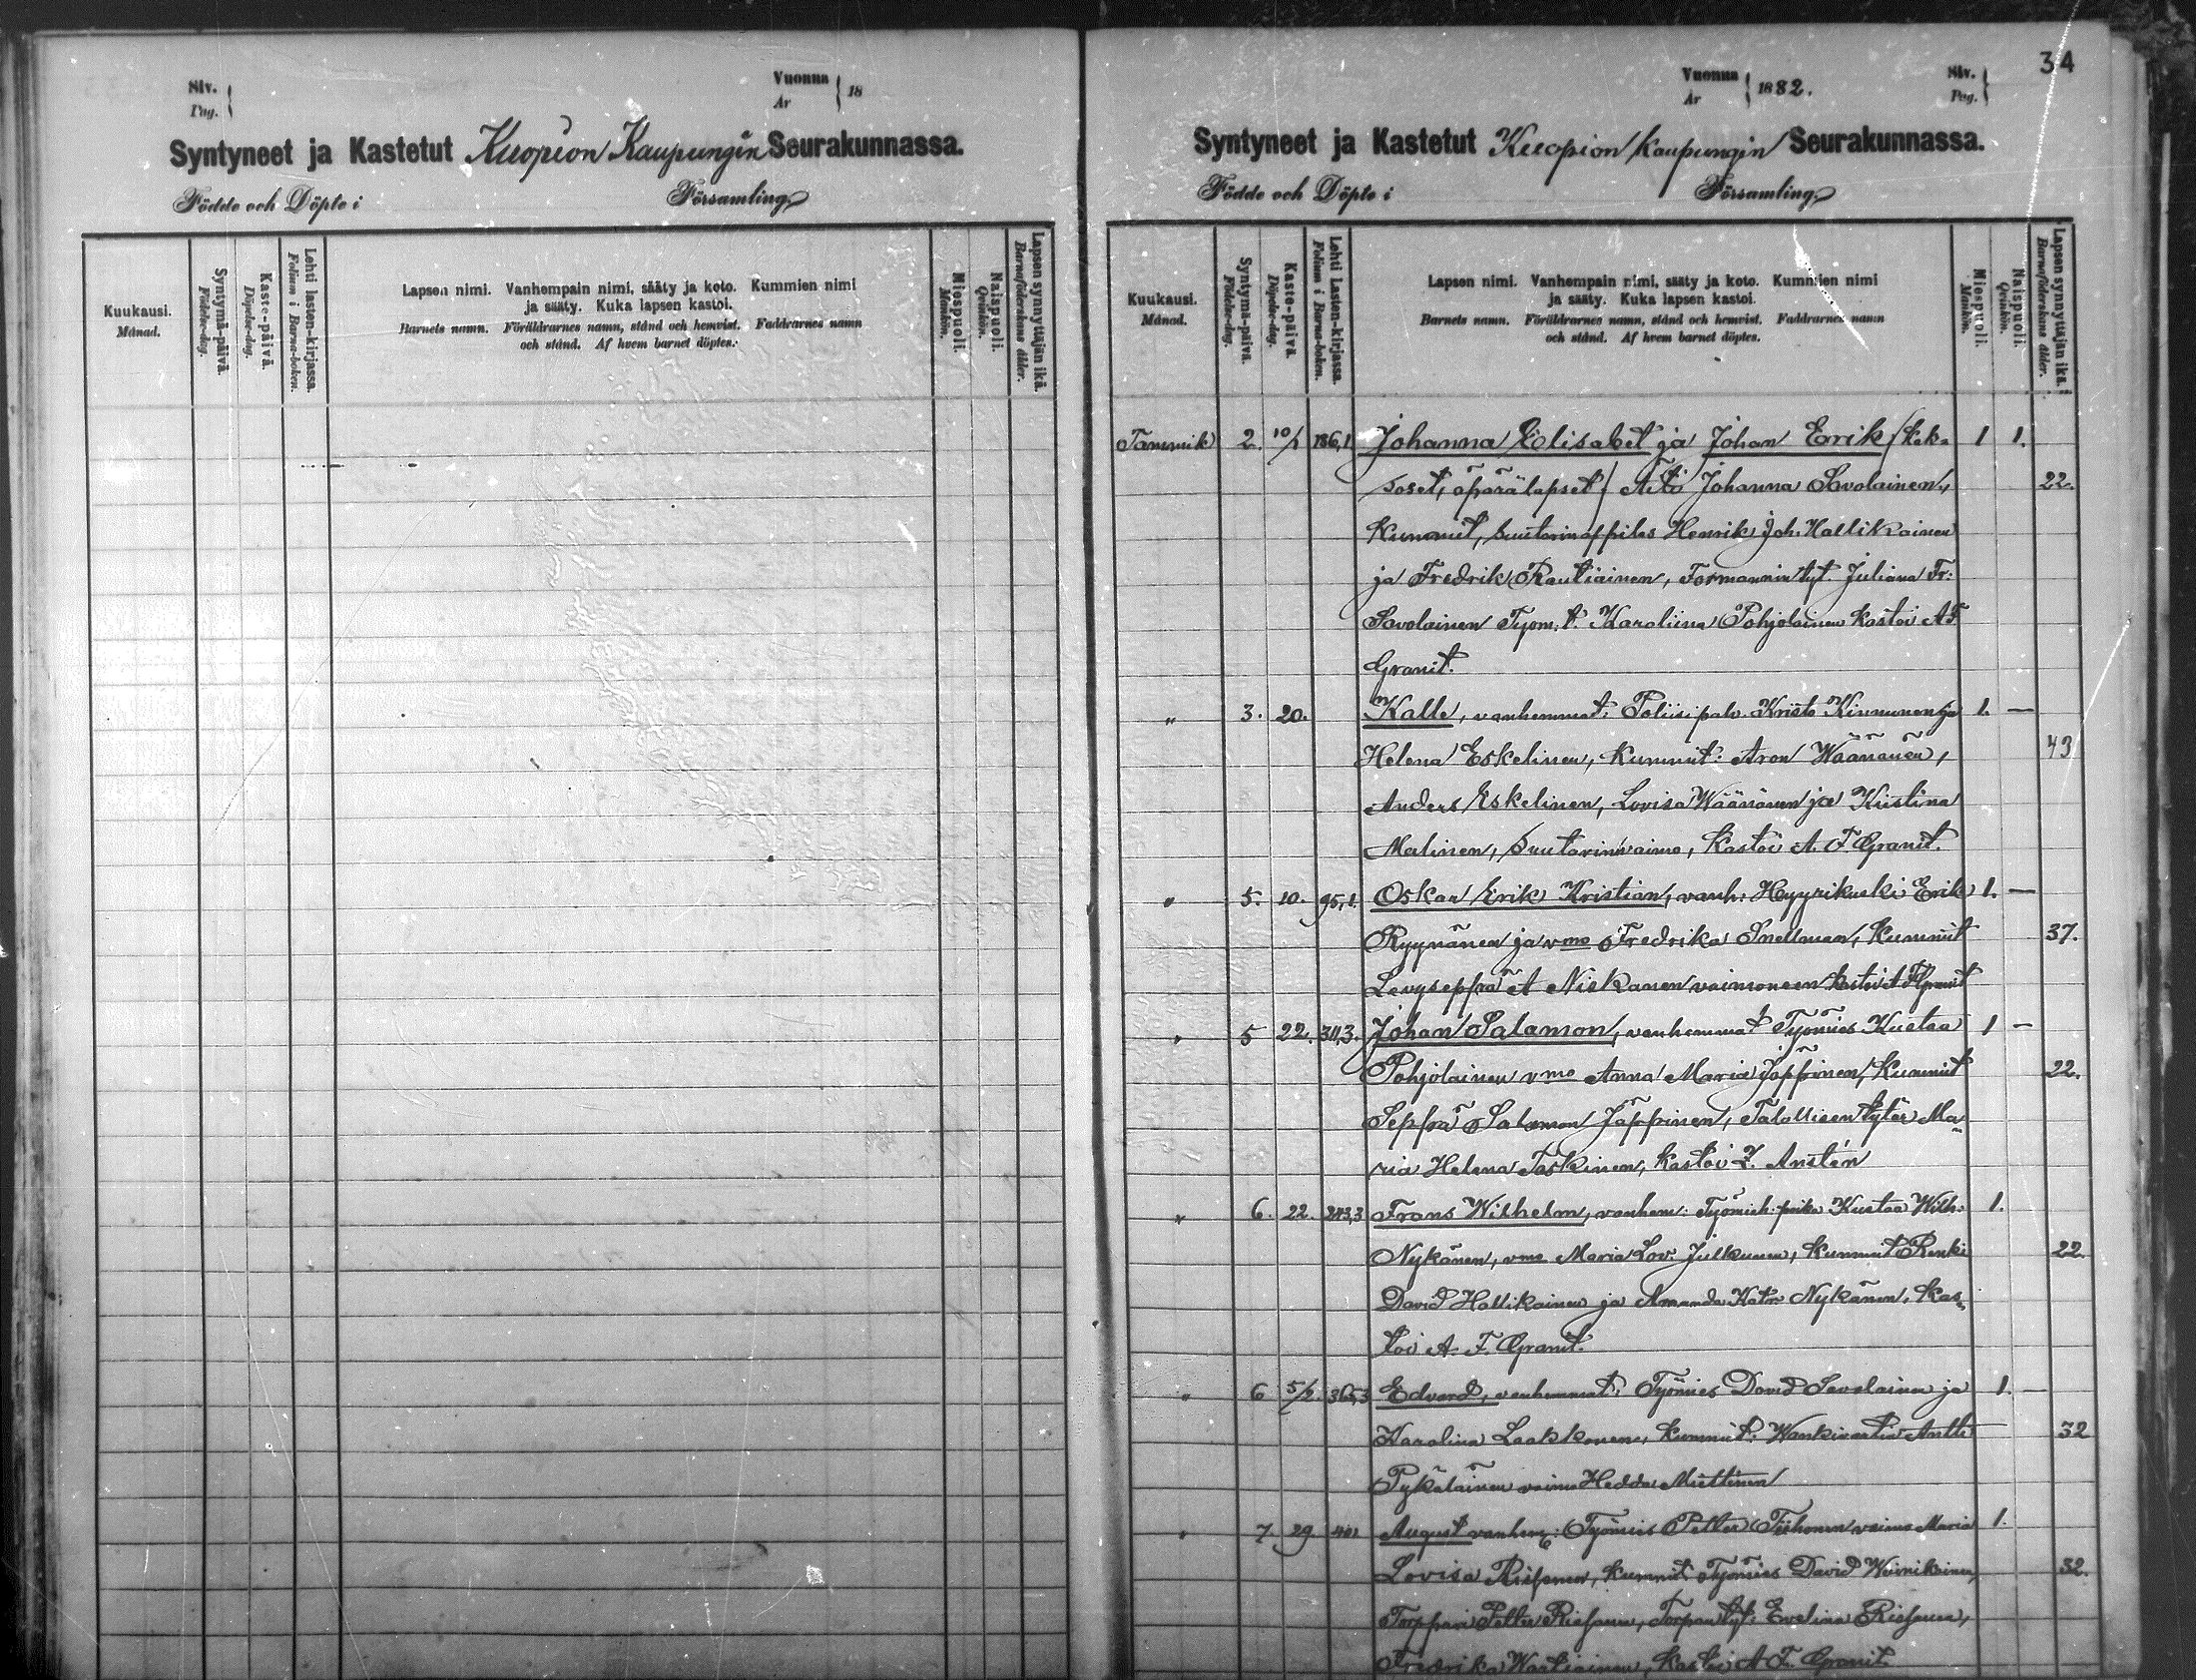 34
Siv.
Pag.
Vuonna
År
18
Syntyneet ja Kastetut Kuopion Kaupungin Seurakunnassa.
Födde och Döpte i Församling
Kuukausi.
Månad.
Syntymä-päivä.
Födelse-dag.
Kaste-päivä.
Döpelse-dag.
Lehti lasten-kirjassa.
Folium i Barna-boken.
Lapsen nimi. Vanhempain nimi, sääty ja koto. Kummien nimi
ja sääty. Kuka lapsen kastoi.
Barnets namn. Föräldrarnes namn, stånd och hemvist. Faddrarnes namn
och stånd. Af hvem barnet döptes.
Miespuoli.
Mankön.
Naispuoli.
Qvinkön.
Lapsen synnyttäjän ikä.
Barnaföderskans ålder.
Vuonna
År
1882.
Siv.
Pag.
Syntyneet ja Kastetut Kuopion Kaupungin Seurakunnassa.
Födde och Döpte i Församling.
Kuukausi.
Månad.
Syntymä-päivä.
Födelse-dag.
Kaste-päivä.
Döpelse-dag.
Lehti Lasten-kirjassa.
Folium i Barna-boken.
Lapsen nimi. Vanhempain nimi, sääty ja koto. Kummien nimi
ja sääty. Kuka lapsen kastoi.
Barnets namn. Föräldrarnes namn, stånd och hemvist. Faddrarnes namn
och stånd. Af hvem barnet döptes.
Miespuoli.
Mankön.
Naispuoli.
Qvinkön.
Lapsen synnyttäjän ikä.
Barnaföderskans ålder.
Tammik 2. 10/1 186,1 Johanna Elisabet ja Johan Erik /kak- 1 1.
soset, äpärälapset/ Äiti Johanna Savolainen, 22.
Kummit, Suutarinoppilas Henrik Joh. Hallikainen
ja Fredrik Rautiainen, Formannin tyt. Juliana Fr:
Savolainen Tyom. t. Karoliina Pohjolainen kastoi A F
Granit.
" 3. 20. Kalle, vanhemmat: Poliisipalv. Kristo Kinnunen ja 1. —
Helena Eskelinen, Kummit: Aron Wäänänen, 43
Anders Eskelinen, Lovisa Wäänänen ja Kristina
Malinen, Suutarinvaimo, Kastoi A. F. Granit.
" 5. 10. 95,1. Oskar Erik Kristian, vanh: Hyyrikuski Erik 1. —
Ryynänen ja vmo Fredrika Snellman, Kummit 37.
Levyseppä A Niskanen vaimoneen kastoi A F Granit
" 5 22. 311,3. Johan Salamon, vanhemmat Työmies Kustaa 1 —
Pohjolainen vmo Anna Maria Jäppinen, Kummit 22.
Seppä Salomon Jäppinen, Talollisen tytär Ma-
ria Helena Taskinen, kastoi Z. Anstén
" 6. 22. 243,3 Frans Wilhelm, vanhem: Työmieh. poika Kustaa Wilh: 1.
Nykänen, vmo Maria Lov. Julkunen, Kummit Renki 22.
David Hallikainen ja Amanda Katr. Nykänen, Kas-
toi A. F. Granit.
" 6 5/2. 365,3 Edvard, vanhemmat: Työmies David Savolainen ja 1. —
Karolina Laakkonen, Kummit: Wankivartia Antti 32
Pykäläinen vaimo Hedda Miettinen
" 7. 29. 401 August vanhem: Työmies Petter Tiihonen vaimo Maria 1.
Lovisa Riepponen, Kummit Työmies David Wäinikainen, 32.
Torppari Petter, Torpan tyt: Evelina
Fredrika Wartiainen, Kastoi A. F. Granit.